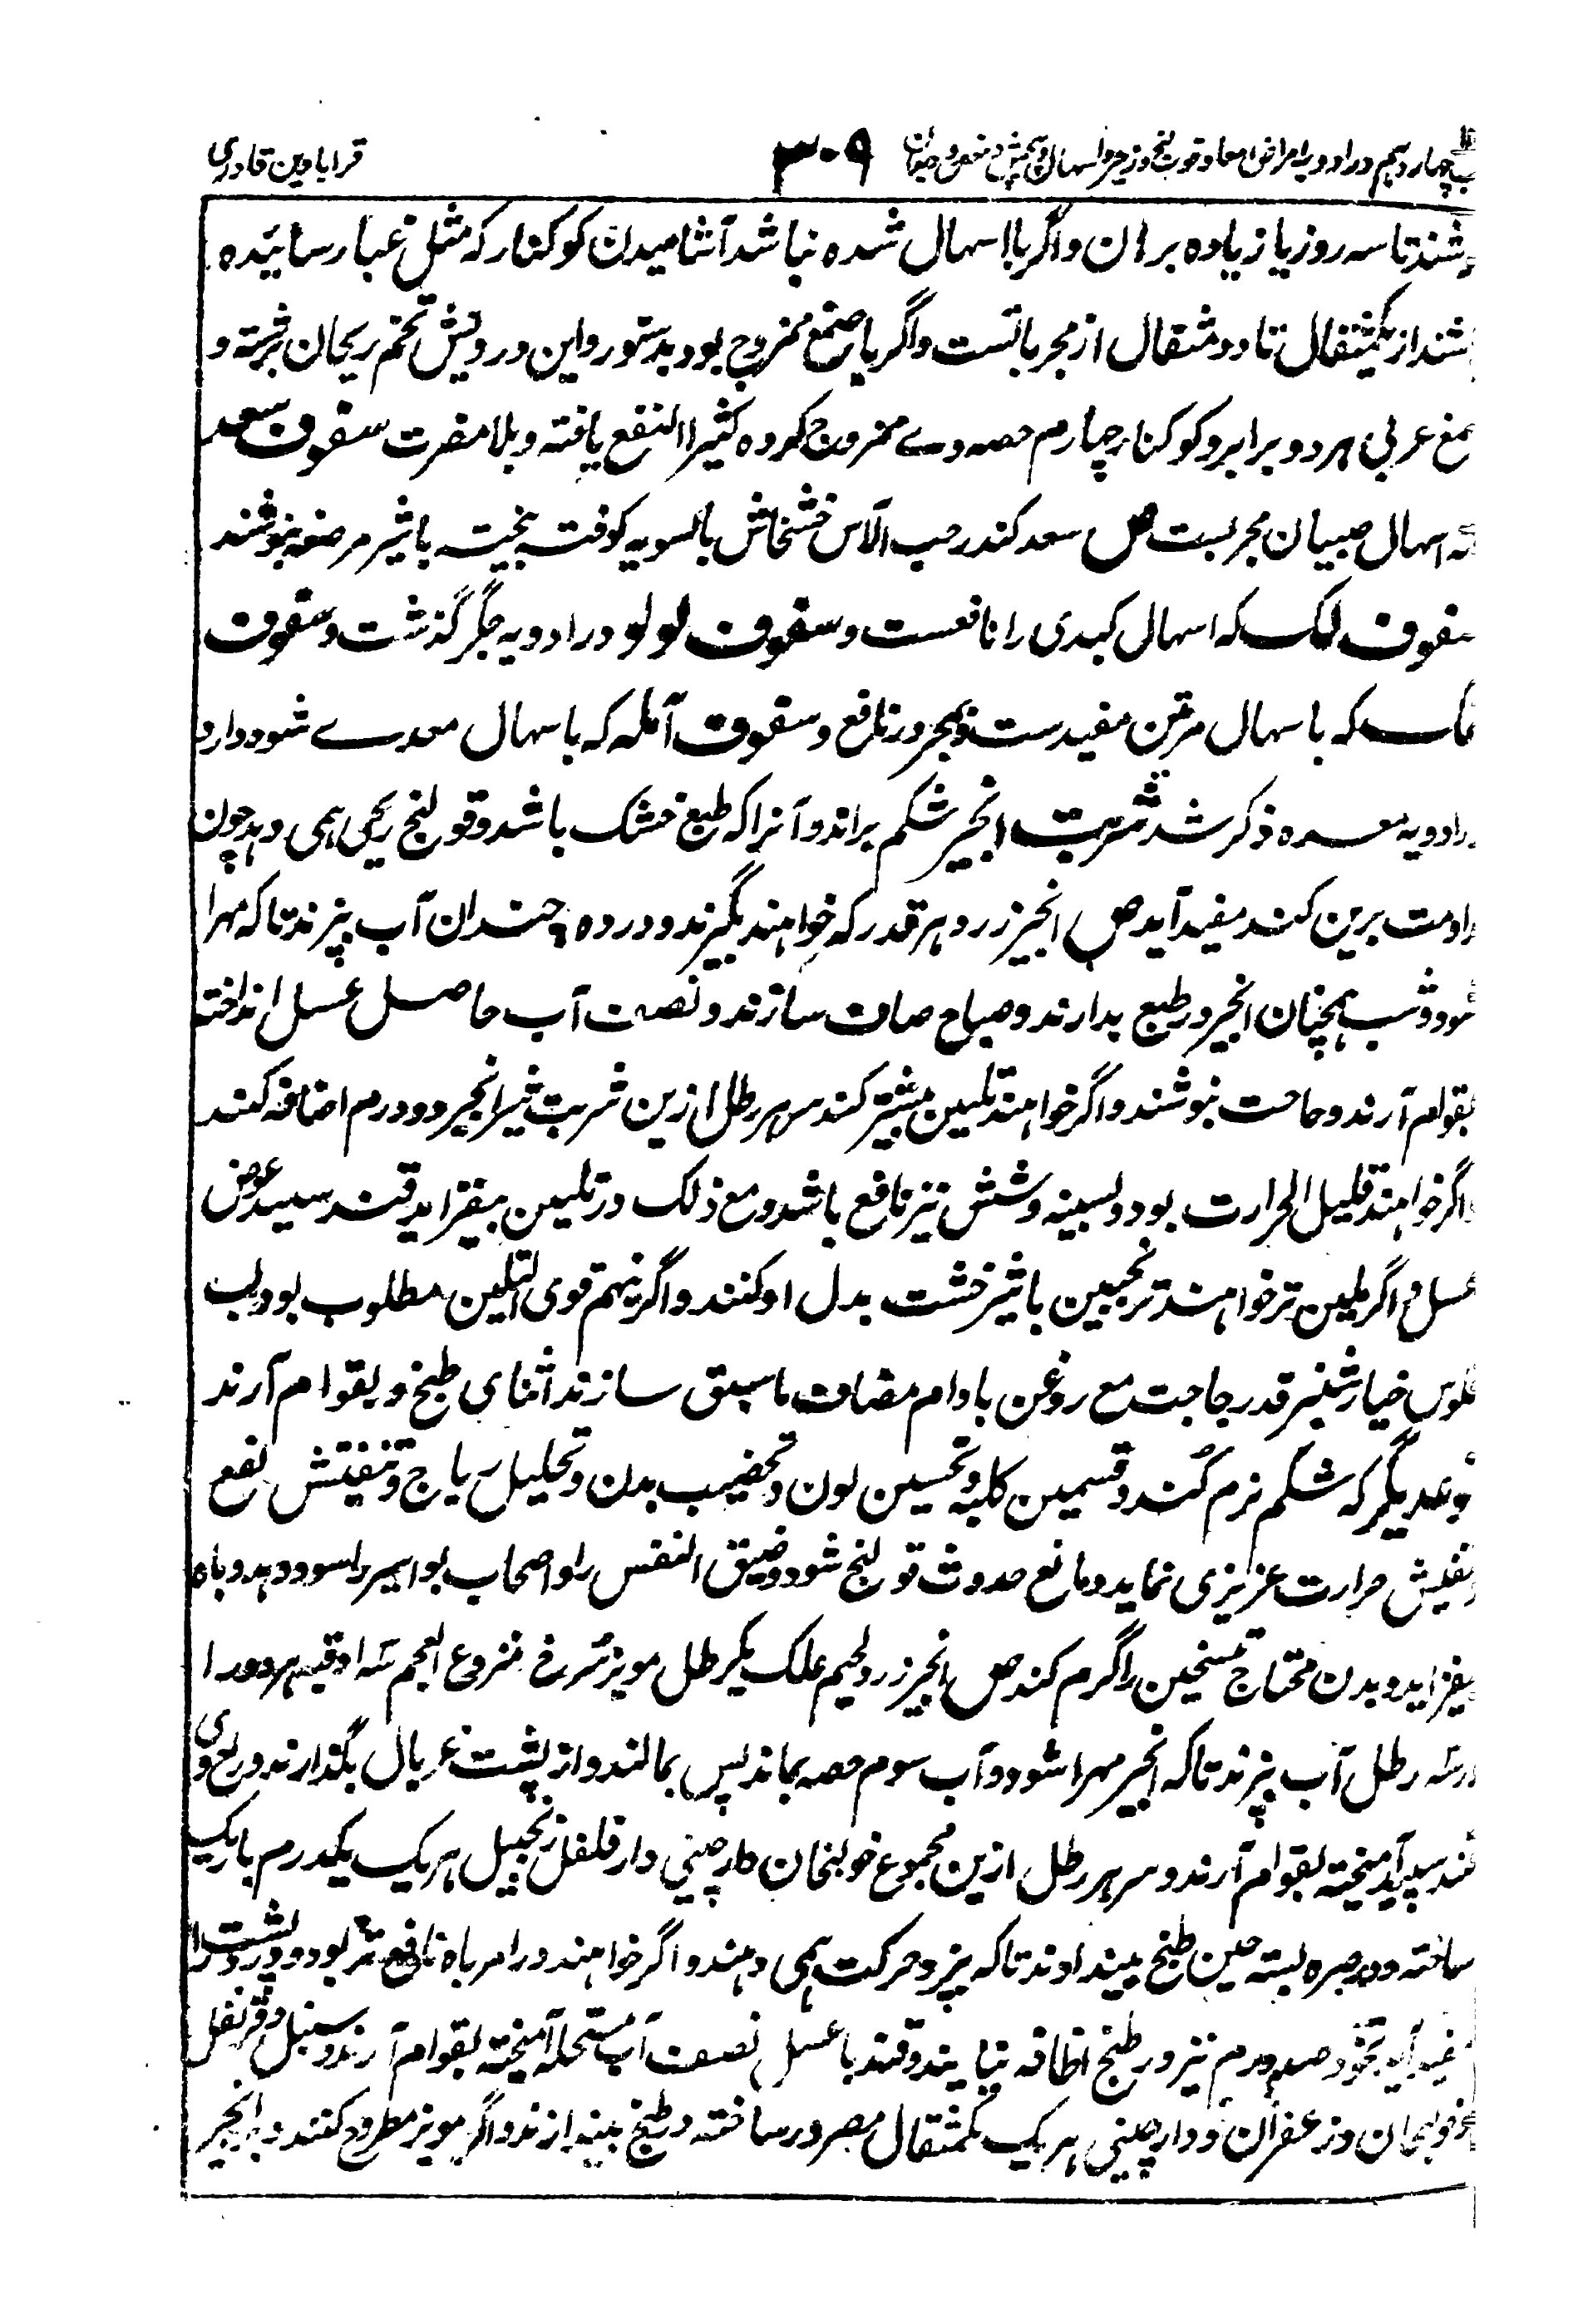 چهاردهم در ادویه امراض امعا و قولنج و زحیر و اسهال و پیچش و مغص ۳۰۹ قرابادین قادری
تا سه روز یا زیاده بران و اگر با اسهال شده نباشد آشامیدن کوکنار که مثل غبار سائیده
از یکمثقال تا دو مثقال از مجرباتست و اگر با صمغ ممزوج بود بدستور و این درویش تخم ریحان برشته و
عربی هر دو برابر و کوکنار چهارم حصه وے ممزوج کرده کثیرا النفع یافته و بلا مضرت سفوف سعد
اسهال صبیان مجربست ص سعد کندر حب الآس خشخاش بالسویه کوفته بیخته با شیر مرضعه بنوشند
سفوف لک که اسهال کبدی را نافعست و سفوف لولو در ادویه جگر گذشت و سفوف
که با سهال مزمن مفیدست و بجرور نافع و سفوف آمله که با سهال معدے شود دارد
در ادویه معده ذکر شد شربت انجیر شکم براند و آنرا که طبع خشک باشد و قولنج ریحی همی دهد چون
برین کند مفید آید ص انجیر زرد هر قدر که خواهند بگیرند و در ده چندان آب پزند تا که مهرا
شود و شب همچنان انجیر در طبع بدارند و صباح صاف سازند و نصف آب حاصل عسل انداخته
بقوام آرند و حاجت بنوشند و اگر خواهند تلیین بیشتر کند سر هر رطل ازین شربت شیر انجیر دو درم اضافه کنند
اگر خواهند قلیل الحرارت بود و لسینه و شش نیز نافع باشد و مع ذلک در تلیین بیفزاید قند سپید عوض
عسل و اگر ملین تر خواهند ترنجبین یا شیر خشت بدل او کنند و اگر نیهم قوی التلیین مطلوب بود لب
فلوس خیارشنبر قدر حاجت مع روغن بادام مضاف ما سبق سازند اثنای طبخ و بقوام آرند
نوعدیگر که شکم نرم کند و تسمین کلیه و تحسین لون و تخصیب بدن و تحلیل ریاح و تفتیش نفع
حرارت غریزی نماید و مانع حدوث قولنج شود و ضیق النفس را و اصحاب بواسیر را سود دهد و باه
بیفزاید و بدن محتاج تسخین را گرم کند ص انجیر زرد لحیم علک یکرطل مویز سرخ منزوع العجم سه اوقیه هر دو را
در سه رطل آب پزند تا که انجیر مهرا شود و آب سوم حصه بماند پس بمالند و از پشت غربال بگذارند و ربع وی
قند سپید آمیخته بقوام آرند و سر هر رطل ازین مجموع خولنجان دارچینی دار فلفل زنجبیل هر یک یکدرم باریک
ساخته و در صره بسته حین طبخ بیندازند تا که پزد حرکت همی دهند و اگر خواهند در امر باه نافع تر بود و درد پشت را
صد درم نیز در طبخ اضافه نمایند و قند با عسل نصف آب مستحله آمیخته بقوام آرند و سنبل و قرنفل
و خولنجان و زعفران و دارچینی هر یک یکمثقال مصرور ساخته در طبخ بیندازند و اگر مویز مطروح کنند و بر انجیر